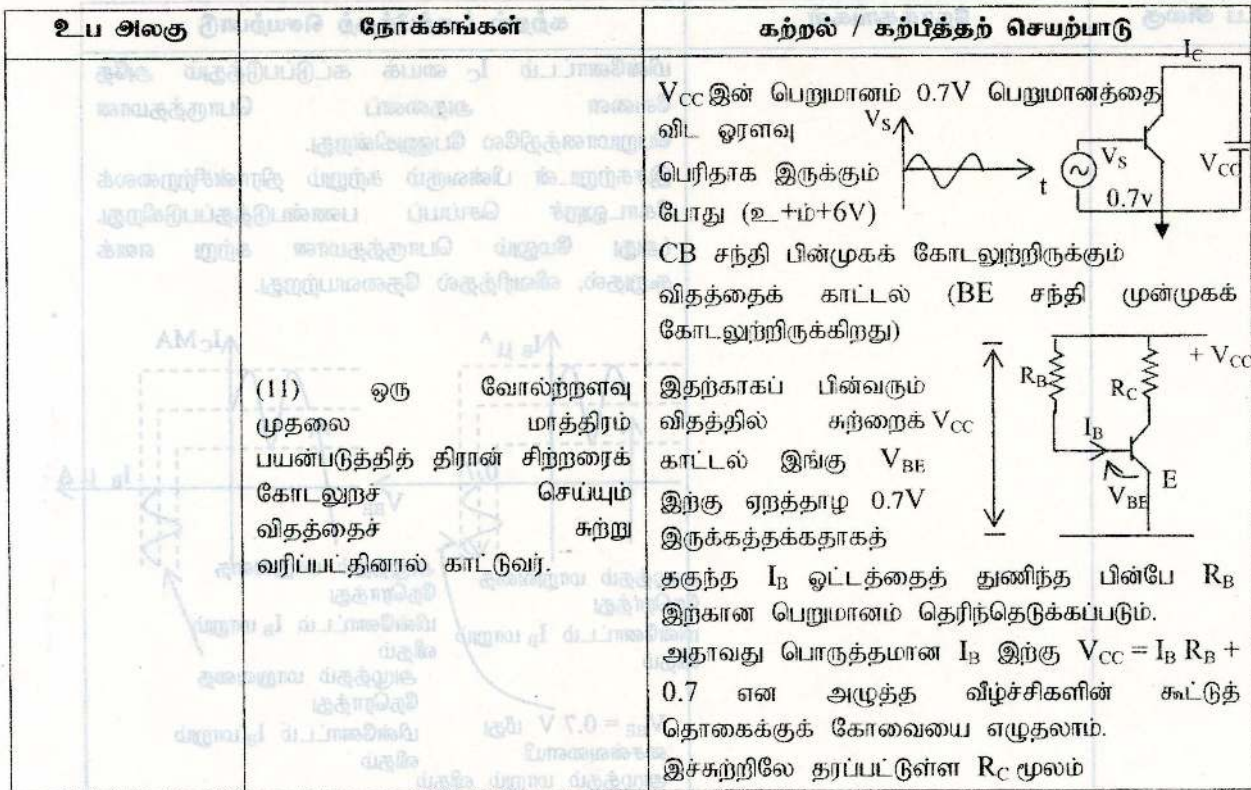 உப அலகு
நோக்கங்கள்
கற்றல் / கற்பித்தற் செயற்பாடு
(11) ஒரு வோல்ற்றளவு
முதலை மாத்திரம்
பயன்படுத்தித் திரான் சிற்றரைக்
கோடலுறச் செய்யும்
விதத்தைச் சுற்று
வரிப்பட்தினால் காட்டுவர்.
V_CC இன் பெறுமானம் 0.7V பெறுமானத்தை
விட ஓரளவு
பெரிதாக இருக்கும்
போது (உ+ம்+6V)
V_S
t
I_C
V_S
0.7v
V_CC
CB சந்தி பின்முகக் கோடலுற்றிருக்கும்
விதத்தைக் காட்டல் (BE சந்தி முன்முகக்
கோடலுற்றிருக்கிறது)
இதற்காகப் பின்வரும்
விதத்தில் சுற்றைக்
காட்டல் இங்கு V_BE
இற்கு ஏறத்தாழ 0.7V
இருக்கத்தக்கதாகத்
V_CC
R_B
R_C
+ V_CC
I_B
V_BE
E
தகுந்த I_B ஓட்டத்தைத் துணிந்த பின்பே R_B
இற்கான பெறுமானம் தெரிந்தெடுக்கப்படும்.
அதாவது பொருத்தமான I_B இற்கு V_CC = I_B R_B +
0.7 என அழுத்த வீழ்ச்சிகளின் கூட்டுத்
தொகைக்குக் கோவையை எழுதலாம்.
இச்சுற்றிலே தரப்பட்டுள்ள R_C மூலம்